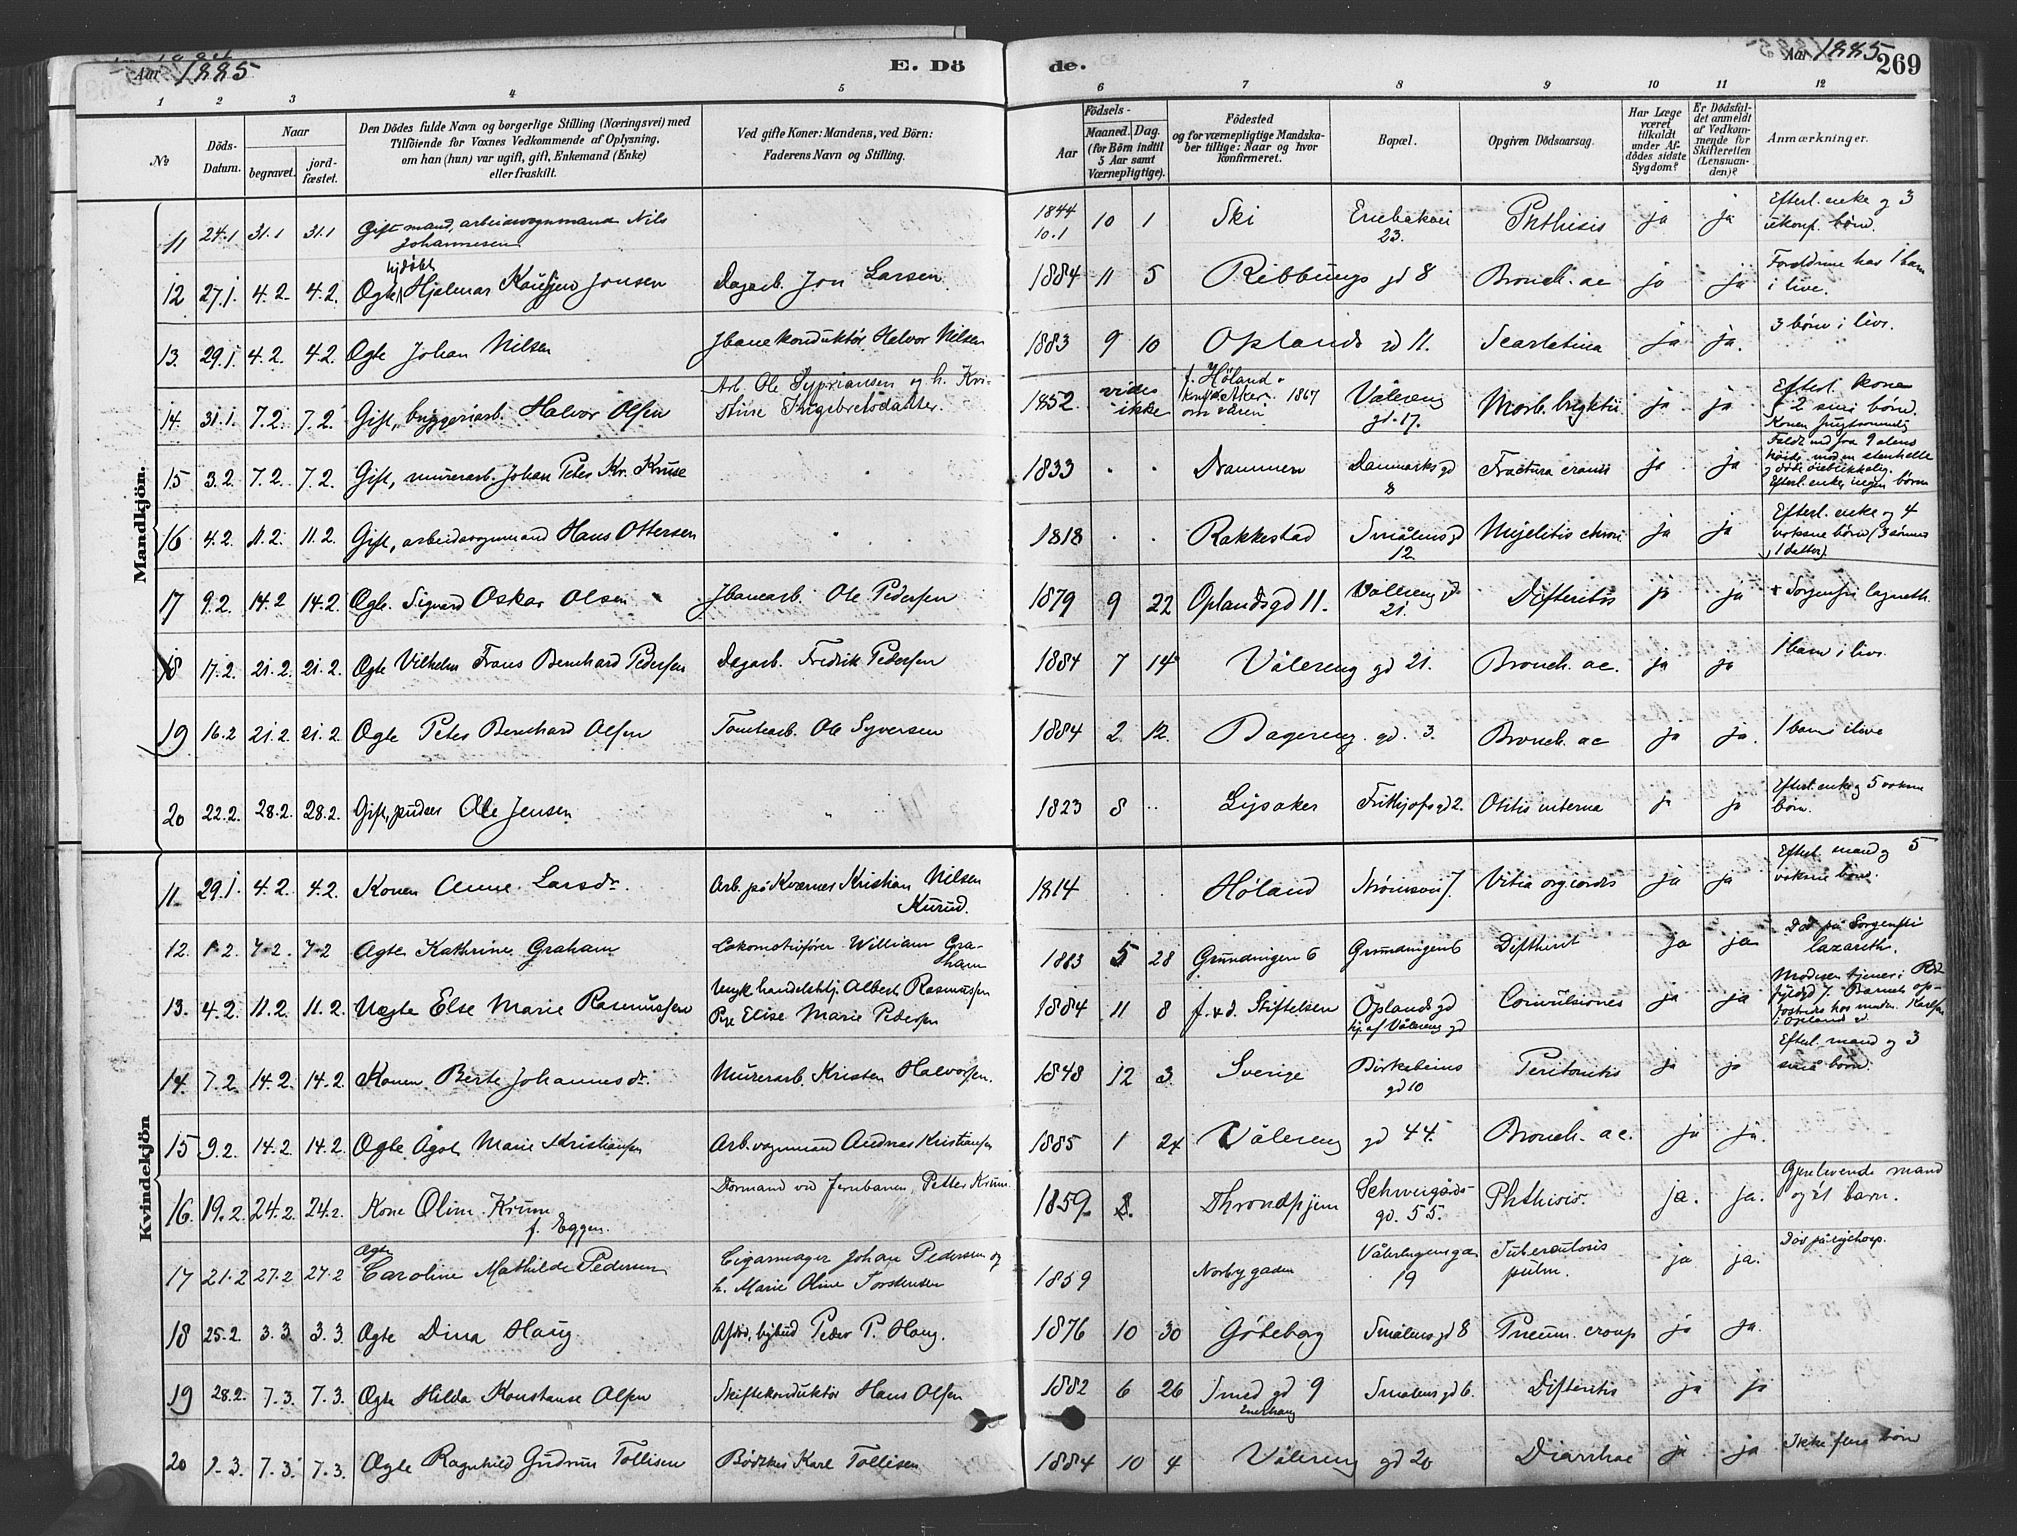 Aar 1885
E. Dö
de.
Aar 1885
269
1 2 3 4 5 6 7 8 9 10 11 12
No
Döds-Datum.
Naar
begravet.
jord-fæstet.
Den Dödes fulde Navn og borgerlige Stilling (Næringsvei) med
Tilföiende for Voxnes Vedkommende af Oplysning,
om han (hun) var ugift, gift, Enkemand (Enke)
eller fraskilt.
Ved gifte Koner: Mandens, ved Börn:
Faderens Navn og Stilling.
Födsels-
Aar
Maaned. Dag.
(for Börn indtil
5 Aar samt
Værnepligtige).
Födested
og for værnepligtige Mandska-
ber tillige: Naar og hvor
konfirmeret.
Bopæl.
Opgiven Dödsaarsag.
Har Læge
været
tilkaldt
under Af-
dödes sidste
Sygdom?
Er Dödsfal-
det anmeldt
af Vedkom-
mende for
Skifteretten
(Lensman-
den)?
Anmærkninger.
Mandkjön.
11 24.1 31.1 31.1 Gift mand, arbeidsvognmand Nils Johannesen 1844 10.1 10 1 Ski 23. Phthisis ja ja Efterl. enke og 3 ukonf. börn.
12 27.1. 4.2. 4.2. Ægte Hjalmar Jonsen Dagarb. Jon Larsen 1884 11 5 Ribbungs gd 8 Bronch. ac ja ja Forældrene har 1 barn i live.
13. 29.1 4.2. 4.2. Ægte Johan Nilsen Jbanekonduktör Halvor Nilsen 1883 9 10 Oplands gd 11. Scarlatina ja ja. 3 börn i live.
14. 31.1. 7.2. 7.2. Gift, bryggeriarb. Halvor Olsen Arb. Ole Sypriansen og h. Kristine Ingebretsdatter. 1852. vides ikke f. Höland. konf. Aker 1867 om våren Vålereng gd. 17. Morb. brightii ja ja Efterl. konen 2 smi börn. Konen frugtsommelig
15 3.2. 7.2. 7.2. Gift, murerarb. Johan Peter Kr. Kruse 1833 Drammen Danmarks gd 8 Fractura cranii ja ja Faldt ned fra 9 alens höide mod en stenhelle og döde öieblikkelig. Efterl. enke, ingen börn
16 4.2. 11.2. 11.2. Gift, arbeidsvognmand Hans Ottersen 1818 Rakkestad Smålens gd 12 Myelitis chron. ja ja Efterl. enke og 4 voksne börn (3 sönner, 1 datter).
17 9.2. 14.2 14.2. Ægte. Sigvard Oskar Olsen Jbanearb. Ole Pedersen 1879 9 22 Oplandsgd 11. Vålereng gd 21. Difteritis ja ja † Sorgenfri lazareth.
18 17.2. 21.2. 21.2. Ægte Vilhelm Frans Bernhard Pedersen Dagarb. Fredrik Pedersen 1884 7 14 Vålereng gd 21. Bronch. ac. ja ja 1 barn i live.
19 16.2 21.2. 21.2. Ægte Peter Bernhard Olsen Tomtearb. Ole Syversen 1884 2 12. Dagereng gd. 3. Bronch. ac ja ja. 1 barn i live
20 22.2. 28.2. 28.2. Gift, Ole Jensen 1823 8 Lysaker Frithjofs gd 2. Otitis interna ja ja Efterl. enke og 5 voksne börn.
Kvindekjön
11. 29.1. 4.2. 4.2. Konen Anne Larsdr. Arb. på Kværnes Kristian Nilsen Kurud. 1814 Höland Strömsvn 7. Vitia org. cordis ja ja Efterl. mand og 5 voksne börn.
12. 1.2. 7.2. 7.2 Ægte Kathrine Graham Lokomotivförer William Graham 1883 5 28 Grundingen 6 Grundingen 6 Diftherit ja ja Död på Sorgenfri lazareth.
13. 4.2. 11.2. 11.2. Uægte Else Marie Rasmussen Ungk. handelsbtj. Albert Rasmussen Pige Elise Marie Pedersen 1884 11 8 f. & d. Stiftelsen Oplands gd hj. af Vålereng gd Convulsiones ja ja
14. 7.2. 14.2. 14.2. Konen Berte Johannesdr. Murerarb. Kristen Halvorsen. 1848 12 3. Sverige Birkebeins gd 10 Peritonitis ja ja Efterl. mand og 3 små börn.
15 9.2. 14.2. 14.2. Ægte Agot Marie Kristiansen Arb. vognmand Andreas Kristiansen 1885 1 24 Vålereng gd 44. Bronch. ac. ja ja.
16. 19.2. 24.2. 24.2. Kone Oline Krum f. Eggen. Formand ved jernbanen, Petter Krum. 1859. 8. Throndhjem Schweigårds gd. 55. Phthisis. ja. ja. Gjenlevende mand og et barn.
17 21.2 27.2 27.2 Ægte Caroline Mathilde Pedersen Cigarmager Johan Pedersen og h. Marie Oline Torstensen 1859 Norbygaden Vålerengens gd 19 Tuberculosis pulm. ja ja. Död på rigshosp.
18 25.2. 3.3. 3.3. Ægte Dina Haug Afdöd, bybud Peder P. Haug. 1876 10 30 Göteborg Smålens gd 8 Pneum. croup ja ja.
19 28.2. 7.3. 7.3. Ægte Hilda Konstanse Olsen Skiftekonduktör Hans Olsen 1882 6 26 Smed gd 9 Enerhaug Smålens gd 6. Difteritis ja ja
20 1.3. 7.3. 7.3. Ægte Ragnhild Gudrun Tollisen Bödker Karl Tollisen 1884 10 4 Vålereng gd 20 Diarrhoe ja ja Ikke flere börn